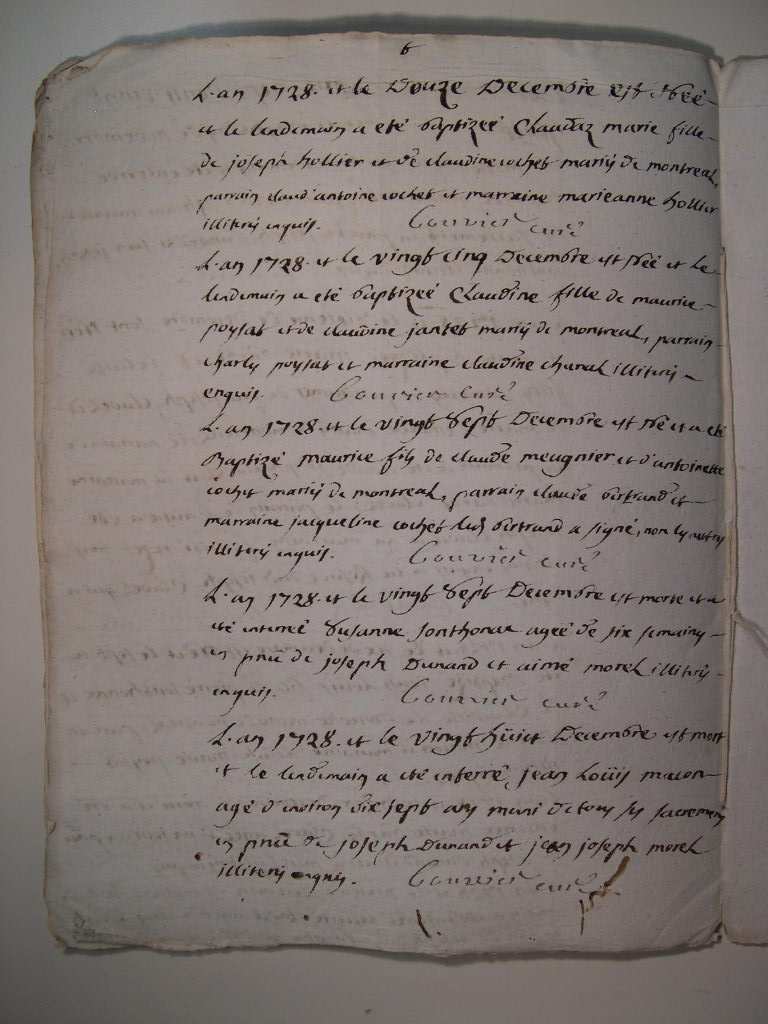 6
L'an 1728. et le Douze Decembre est Née
et le lendemain a eté baptizeé Claudaz marie fille
de joseph hollier et de claudine cochet mariés de montreal,
parrain claud'antoine cochet et marraine marieanne hollier
illiterés enquis. Couvier curé
L'an 1728. et le vingt cinq Decembre est Néé et le
lendemain a eté baptizeé Claudine fille de maurice
poysat et de claudine jantet mariés de montreal, parrain
charles poysat et marraine claudine chanal illiterés
enquis. Couvier curé
L'an 1728. et le vingt sept Decembre est Né et a eté
Baptizé maurice fils de claude meugnier et d'antoinette
cochet mariés de montreal, parrain claude bertrand et
marraine jacqueline cochet bertrand a signé, non les autres
illiterés enquis. Couvier curé
L'an 1728. et le vingt sept Decembre est morte et a
eté enterreé Susanne sonthonax ageé de six semaines
en pnce de joseph Dunand et aimé morel illiterés
enquis. Couvier curé
L'an 1728. et le vingt hüict Decembre est mort
et le lendemain a eté enterré jean Loüis
agé d'environ dix sept ans muni de tous ses sacremens
en pnce de joseph Dunand et jean joseph morel
illiterés enquis. Couvier curé